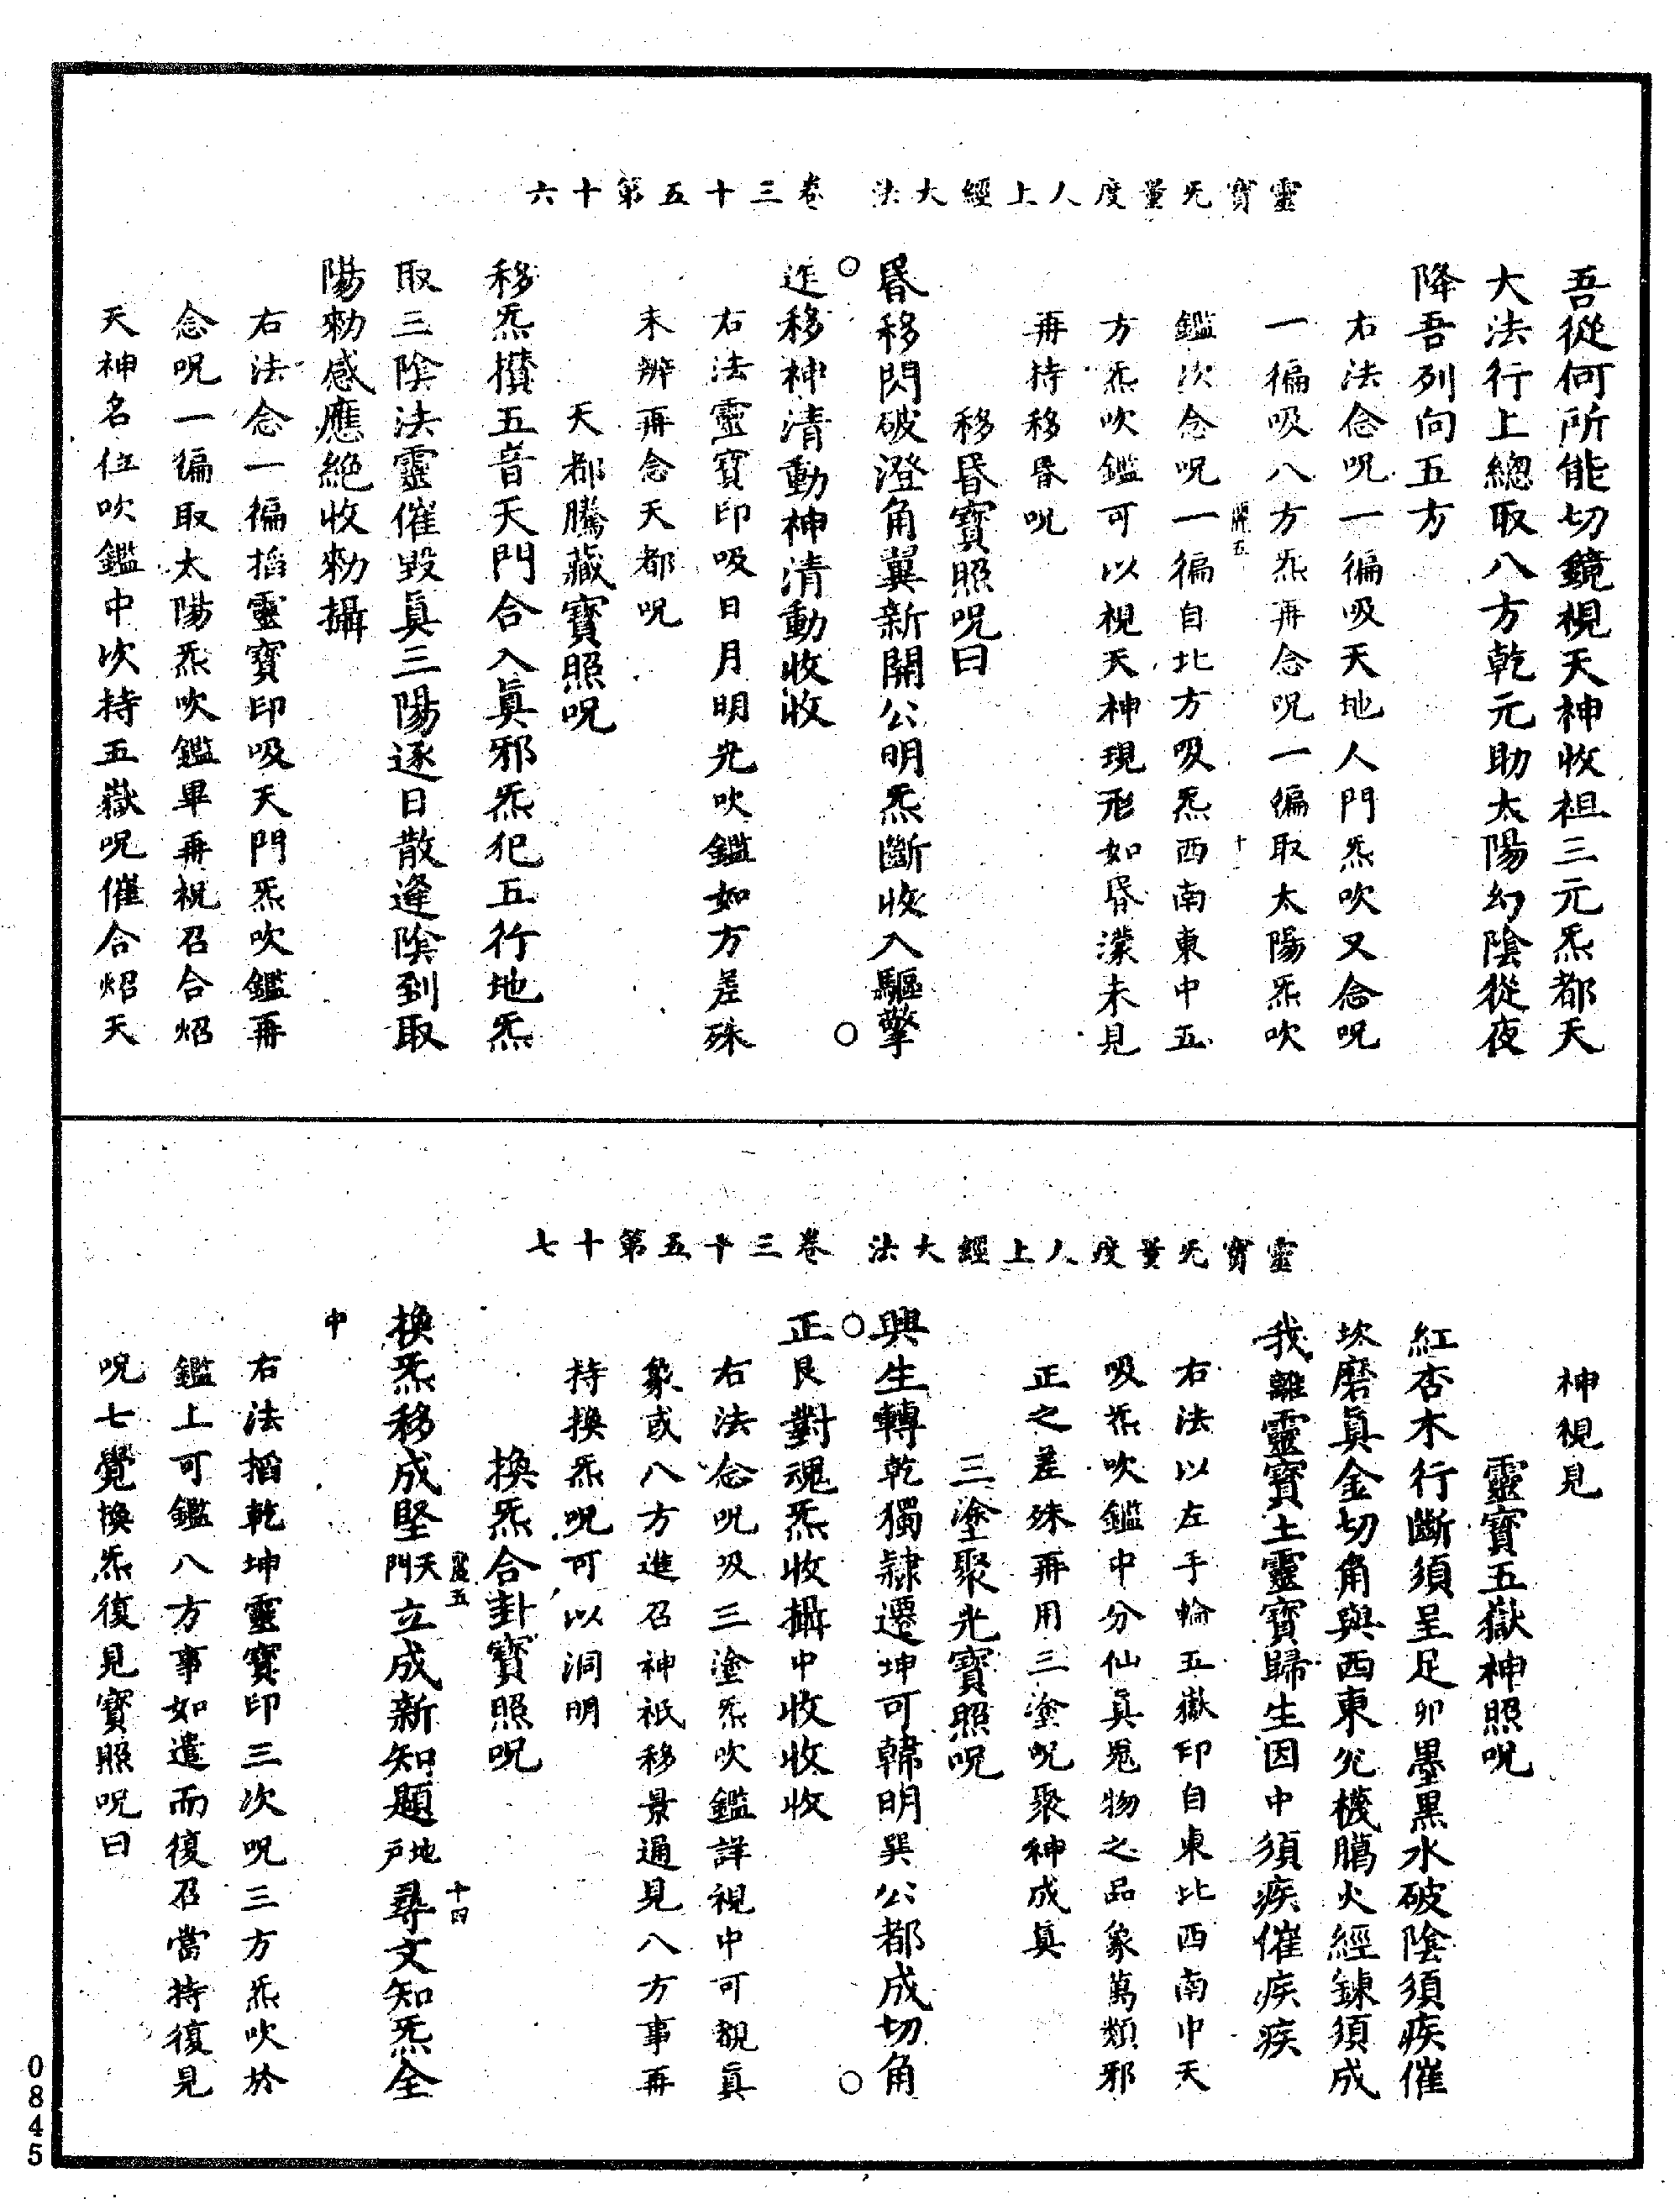 靈寶无量度人上經大法　卷三十五第十六
吾從何所能切鏡視天神收祖三元炁都天
大法行上總取八方乾元助太陽幻陰從夜
降吾列向五方
右法念呪一徧吸天地人門炁吹又念呪
一徧吸八方炁再念呪一徧取太陽炁吹
鑑次念呪一徧自北方吸炁西南東中五
方炁吹鑑可以視天神現形如昬濛未見
再持移昬呪
移昬寶照呪曰
昬移閃破澄角翼新開公明炁斷收入驅擎
迮移神清動神清動收收
右法靈寶印吸日月明光吹鑑如方差殊
未辨再念天都呪
天都騰藏寶照呪
移炁攢五音天門合入眞邪炁犯五行地炁
取三陰法靈催毀眞三陽逐日散逢陰到取
陽勑感應絶收勑攝
右法念一徧搯靈寶印吸天門炁吹鑑再
念呪一徧取太陽炁吹鑑畢再祝召合炤
天神名位吹鑑中次持五嶽呪催合炤天
靈寶无量度人上經大法　卷三十五第十七
神視見
靈寶五嶽神照呪
紅杏木行斷須呈足卯墨黑水破陰須疾催
坎磨眞金切角與西東兊機騰火經鍊須成
我離靈寶土靈寶歸生因中須疾催疾疾
右法以左手輪五嶽印自東北西南中天
吸炁吹鑑中分仙眞鬼物之品象萬類邪
正之差殊再用三塗呪聚神成眞
三塗聚光寶照呪
興生轉乾獨隷遷坤可韓明巽公都成切角
正艮對魂炁收攝中收收收
右法念呪吸三塗炁吹鑑詳視中可覩眞
象或八方進召神祇移景通見八方事再
持換炁呪可以洞明
換炁合卦寶照呪
換炁移成堅天門立成新知題地戶尋文知炁全
中
右法搯乾坤靈寶印三次呪三方炁吹於
鑑上可鑑八方事如遣而復召當持復見
呪七覺換炁復見寶照呪曰
0845